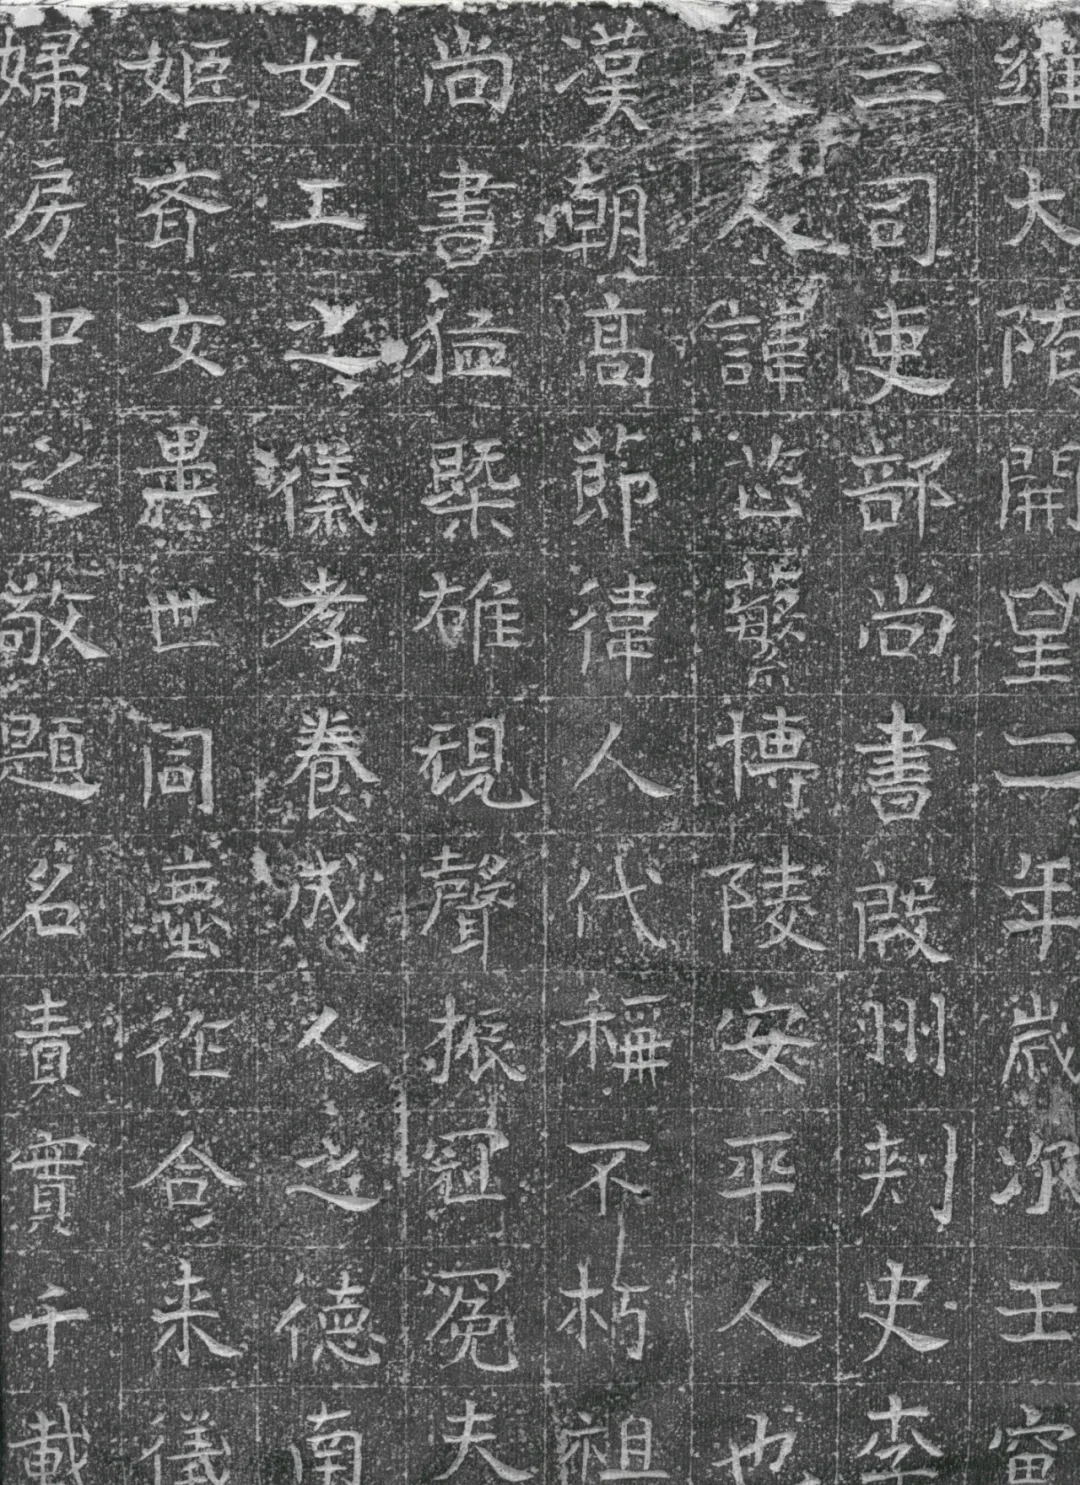 維大隋開皇二年歲次壬寅
三司吏部尚書殷州刺史李
夫人諱㱔蘩博陵安平人也
漢朝高節偉人代稱不朽祖
尚書猛槩雄硯聲振冠冕夫
女工之儀孝養成人之德南
姬齊女墨世同壼徃合来儀
婦房中之敬題名責實千載